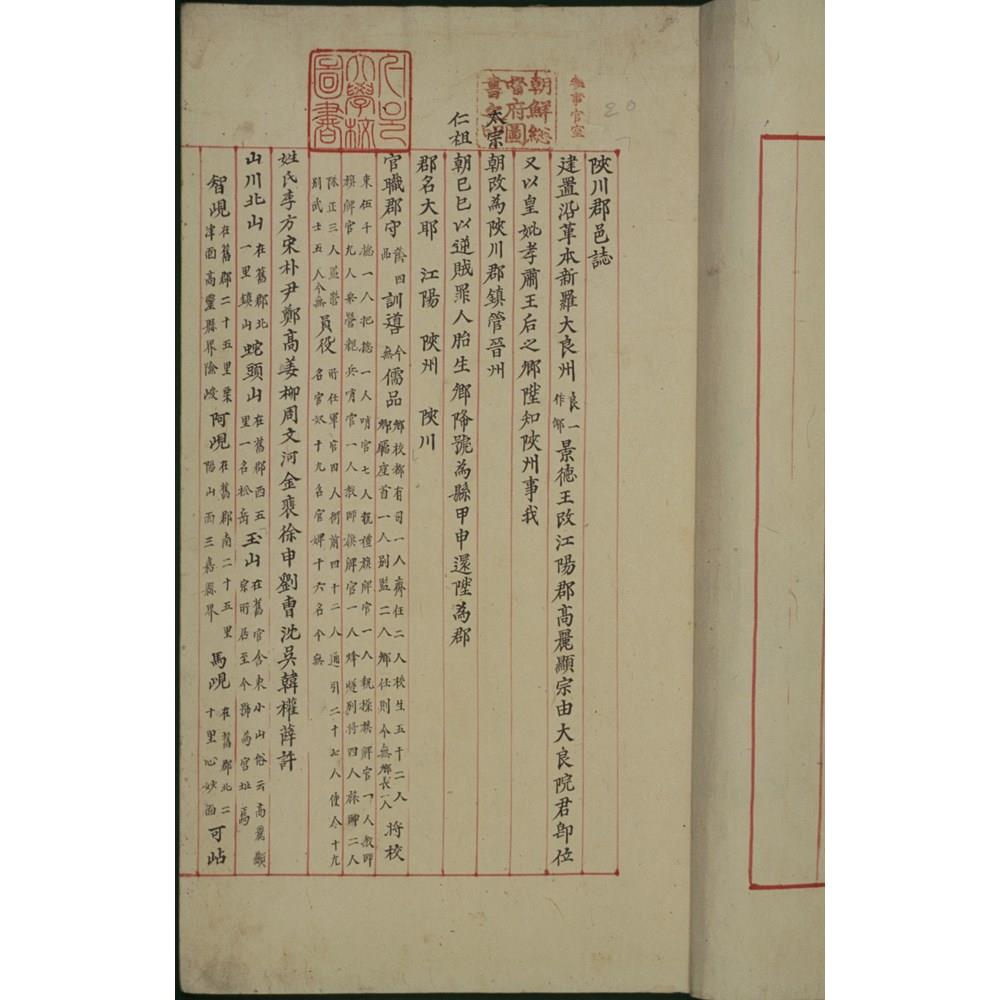 陜川郡邑誌
建置沿革本新羅大良州良一作郍景德王改江陽郡高麗顯宗由大良院君卽位
又以皇妣孝肅王后之鄕陞知陜州事我
太宗朝改爲陜川郡鎭管晉州
仁祖朝己巳以逆賊罪人胎生鄕降號爲縣甲申還陞爲郡
郡名大耶 江陽 陜州 陜川
官職郡守蔭四品訓導今無儒品鄕校都有司一人齋任二人校生五十二人鄕廳座首一人別監二人鄕任則今無鄕長一人將校
東伍千摠一人把摠一人哨官七人旗牌官一人
旗牌官九人 哨官一人教師旗牌官一人烽燧別將四人
隊正三人 所任軍官四人 四十二人通引二十七人使令十九
別武士五人今無員役名官奴十九名官婢十六名今無
姓氏李方宋朴尹鄭高姜柳周文河金裵徐申劉曺沈吳韓權薛許
山川北山在舊郡北一里鎭山蛇頭山在舊郡西五里一名松岳玉山在舊官舍東小山俗云高麗顯宗所居至今號爲宮址焉
智峴在舊郡二十五里栗津面高靈縣界險峻阿峴在舊郡南二十五里陽山面三嘉縣界馬峴在舊郡北二十里心妙面可岾
朝鮮總督府圖書之印
參事官室
大學校圖書
20